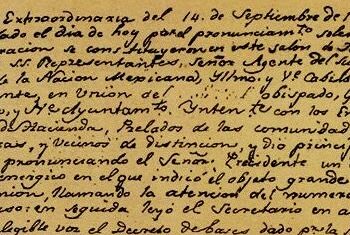 Extraordinaria del 14. de Septiembre de 1
lado el dia de hoy para el pronunciamto. solem
racion se constituyeron en este salon de
SS. Representantes, Señor Agente del Su
la Nacion Mexicana, Yltmo. y Ve. Cabild
nte, en Union del Sr. Obispado,
o, y Ne. Ayuntamto. Yntente. con los Em
de Hacienda, Prelados de las comunidad
rais, y Vecinos de distincion, y dio princip
pronunciando el Señor Presidente un
energico en el que indicó el objeto grande
nion, llamando la atencion del numero
uso: en seguida leyó el Secretario en a
legible voz el Decreto de bases dado pr. la